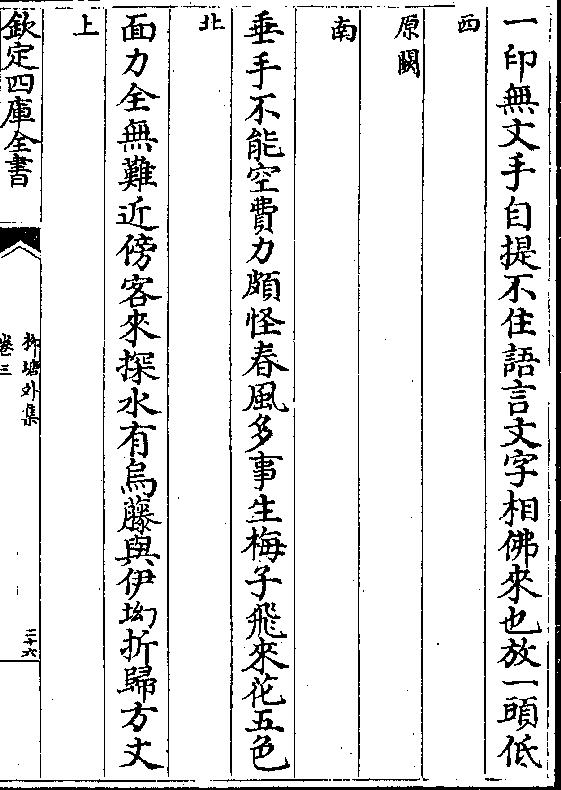 一印無文手自提不住語言文字相佛來也放一頭低
西
原闕
南
垂手不能空費力頗怪春風多事生梅子飛來花五色
北
面力全無難近傍客來探水有烏藤與伊㘭折歸方丈
上
欽定四庫全書
柳塘外集
卷三
三十六